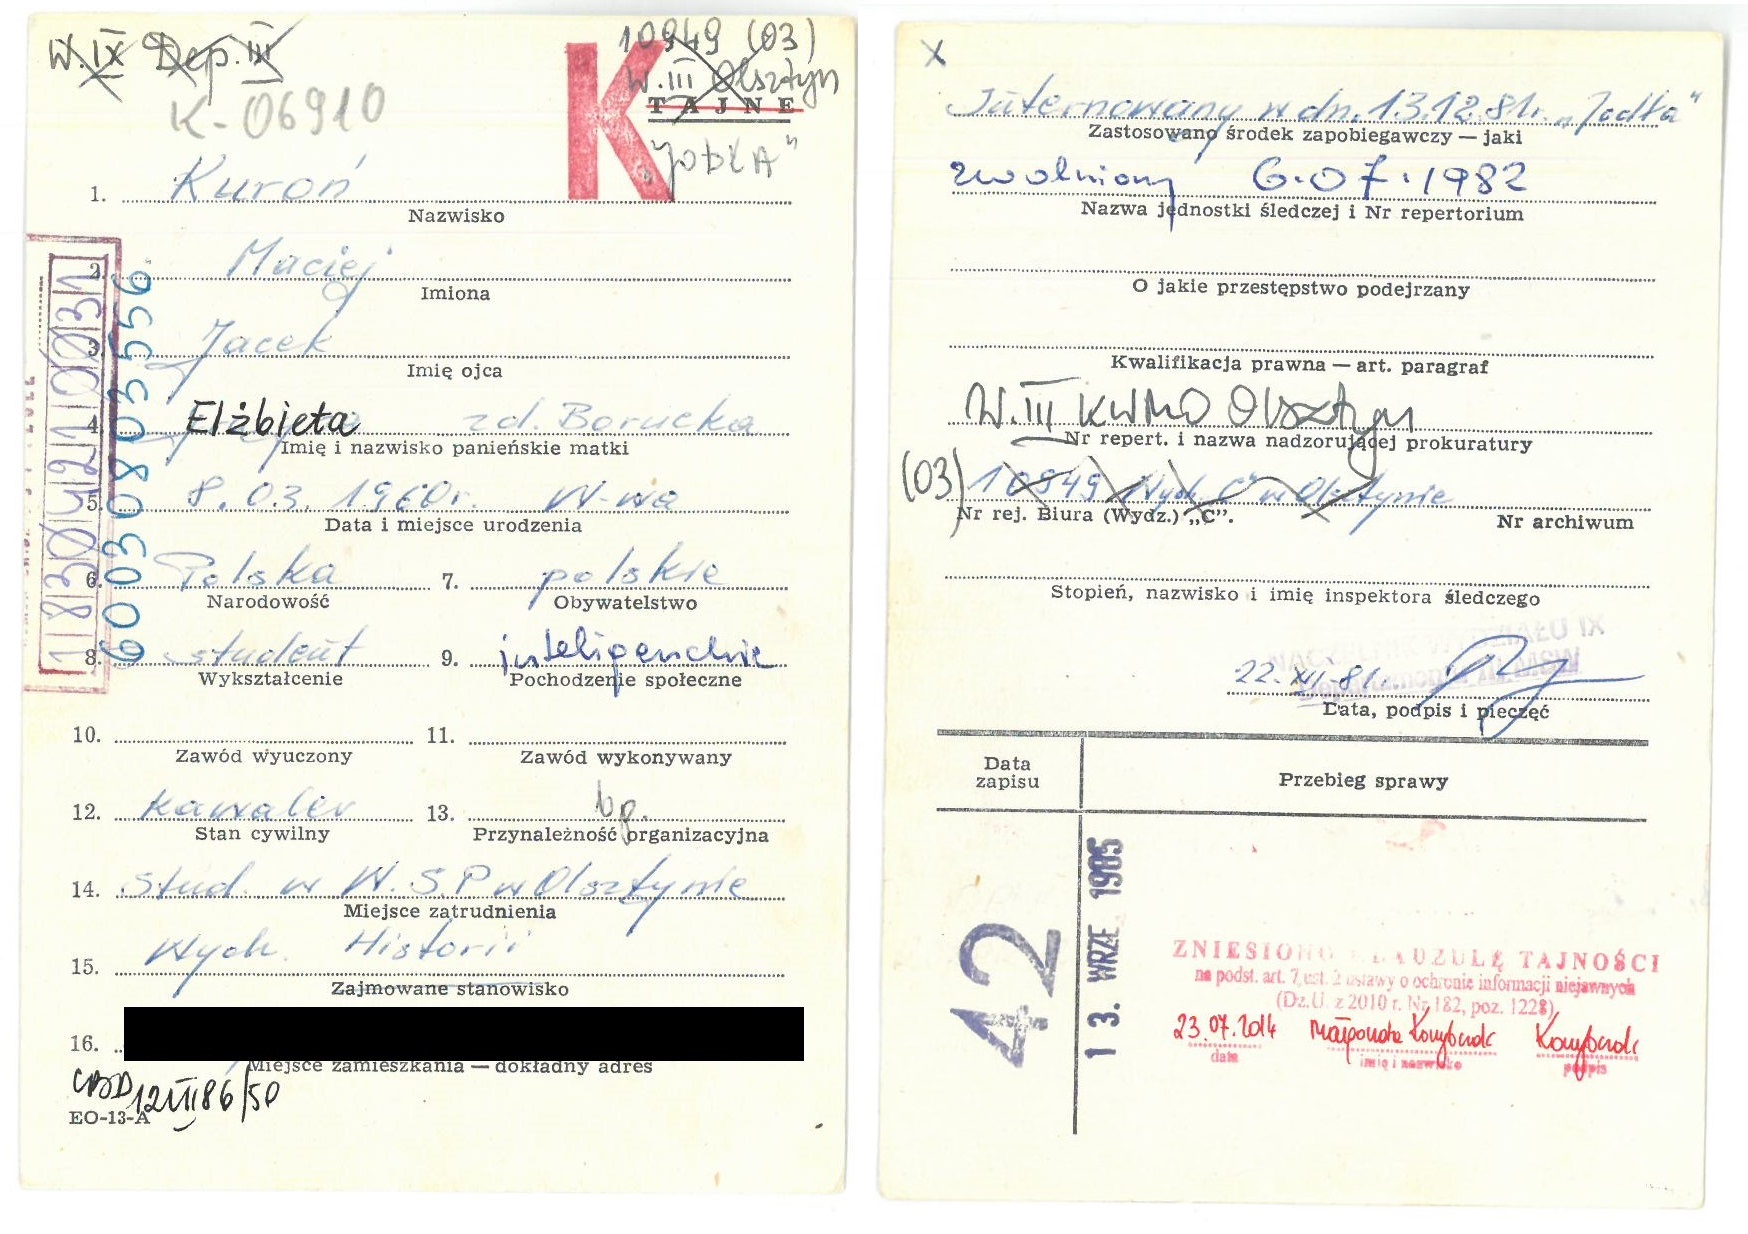 W. IX Dep. III
10949 (03)
W. III Olsztyn
TAJNE
K-06910
K
"JODŁA"
1. Kuroń
Nazwisko
2. Maciej
Imiona
3. Jacek
Imię ojca
4. Elżbieta zd. Borucka
Imię i nazwisko panieńskie matki
5. 8.03.1960r. W-wa
Data i miejsce urodzenia
6. Polska 7. polskie
Narodowość Obywatelstwo
8. student 9. inteligenckie
Wykształcenie Pochodzenie społeczne
10. 11.
Zawód wyuczony Zawód wykonywany
12. kawaler 13. bp.
Stan cywilny Przynależność organizacyjna
14. stud. w W.S.P w Olsztynie
Miejsce zatrudnienia
15. Wych. Historii
Zajmowane stanowisko
16.
Miejsce zamieszkania — dokładny adres
12 III 86/50
EO-13-A
60030803556
X
Internowany w dn. 13.12.81r. „Jodła"
Zastosowano środek zapobiegawczy — jaki
zwolniony 6.07.1982
Nazwa jednostki śledczej i Nr repertorium
O jakie przestępstwo podejrzany
Kwalifikacja prawna — art. paragraf
W. III KWMO Olsztyn
Nr repert. i nazwa nadzorującej prokuratury
(03) 10949 Wydz. "C" w Olsztynie
Nr rej. Biura (Wydz.) „C". Nr archiwum
Stopień, nazwisko i imię inspektora śledczego
NACZELNIK WYDZIAŁU IX
Departamentu III MSW
22.XII-81.
Data, podpis i pieczęć
Data zapisu
Przebieg sprawy
42
13. WRZE 1985
ZNIESIONO KLAUZULĘ TAJNOŚCI
na podst. art. 7, ust. 2 ustawy o ochronie informacji niejawnych
(Dz.U. z 2010 r. Nr 182, poz. 1228)
23.07.2014
data imię i nazwisko podpis